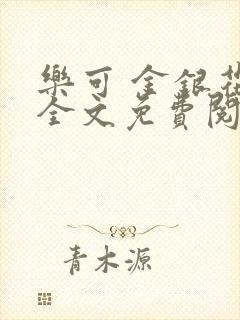 樂可 金銀花
全文免費閱
青木源